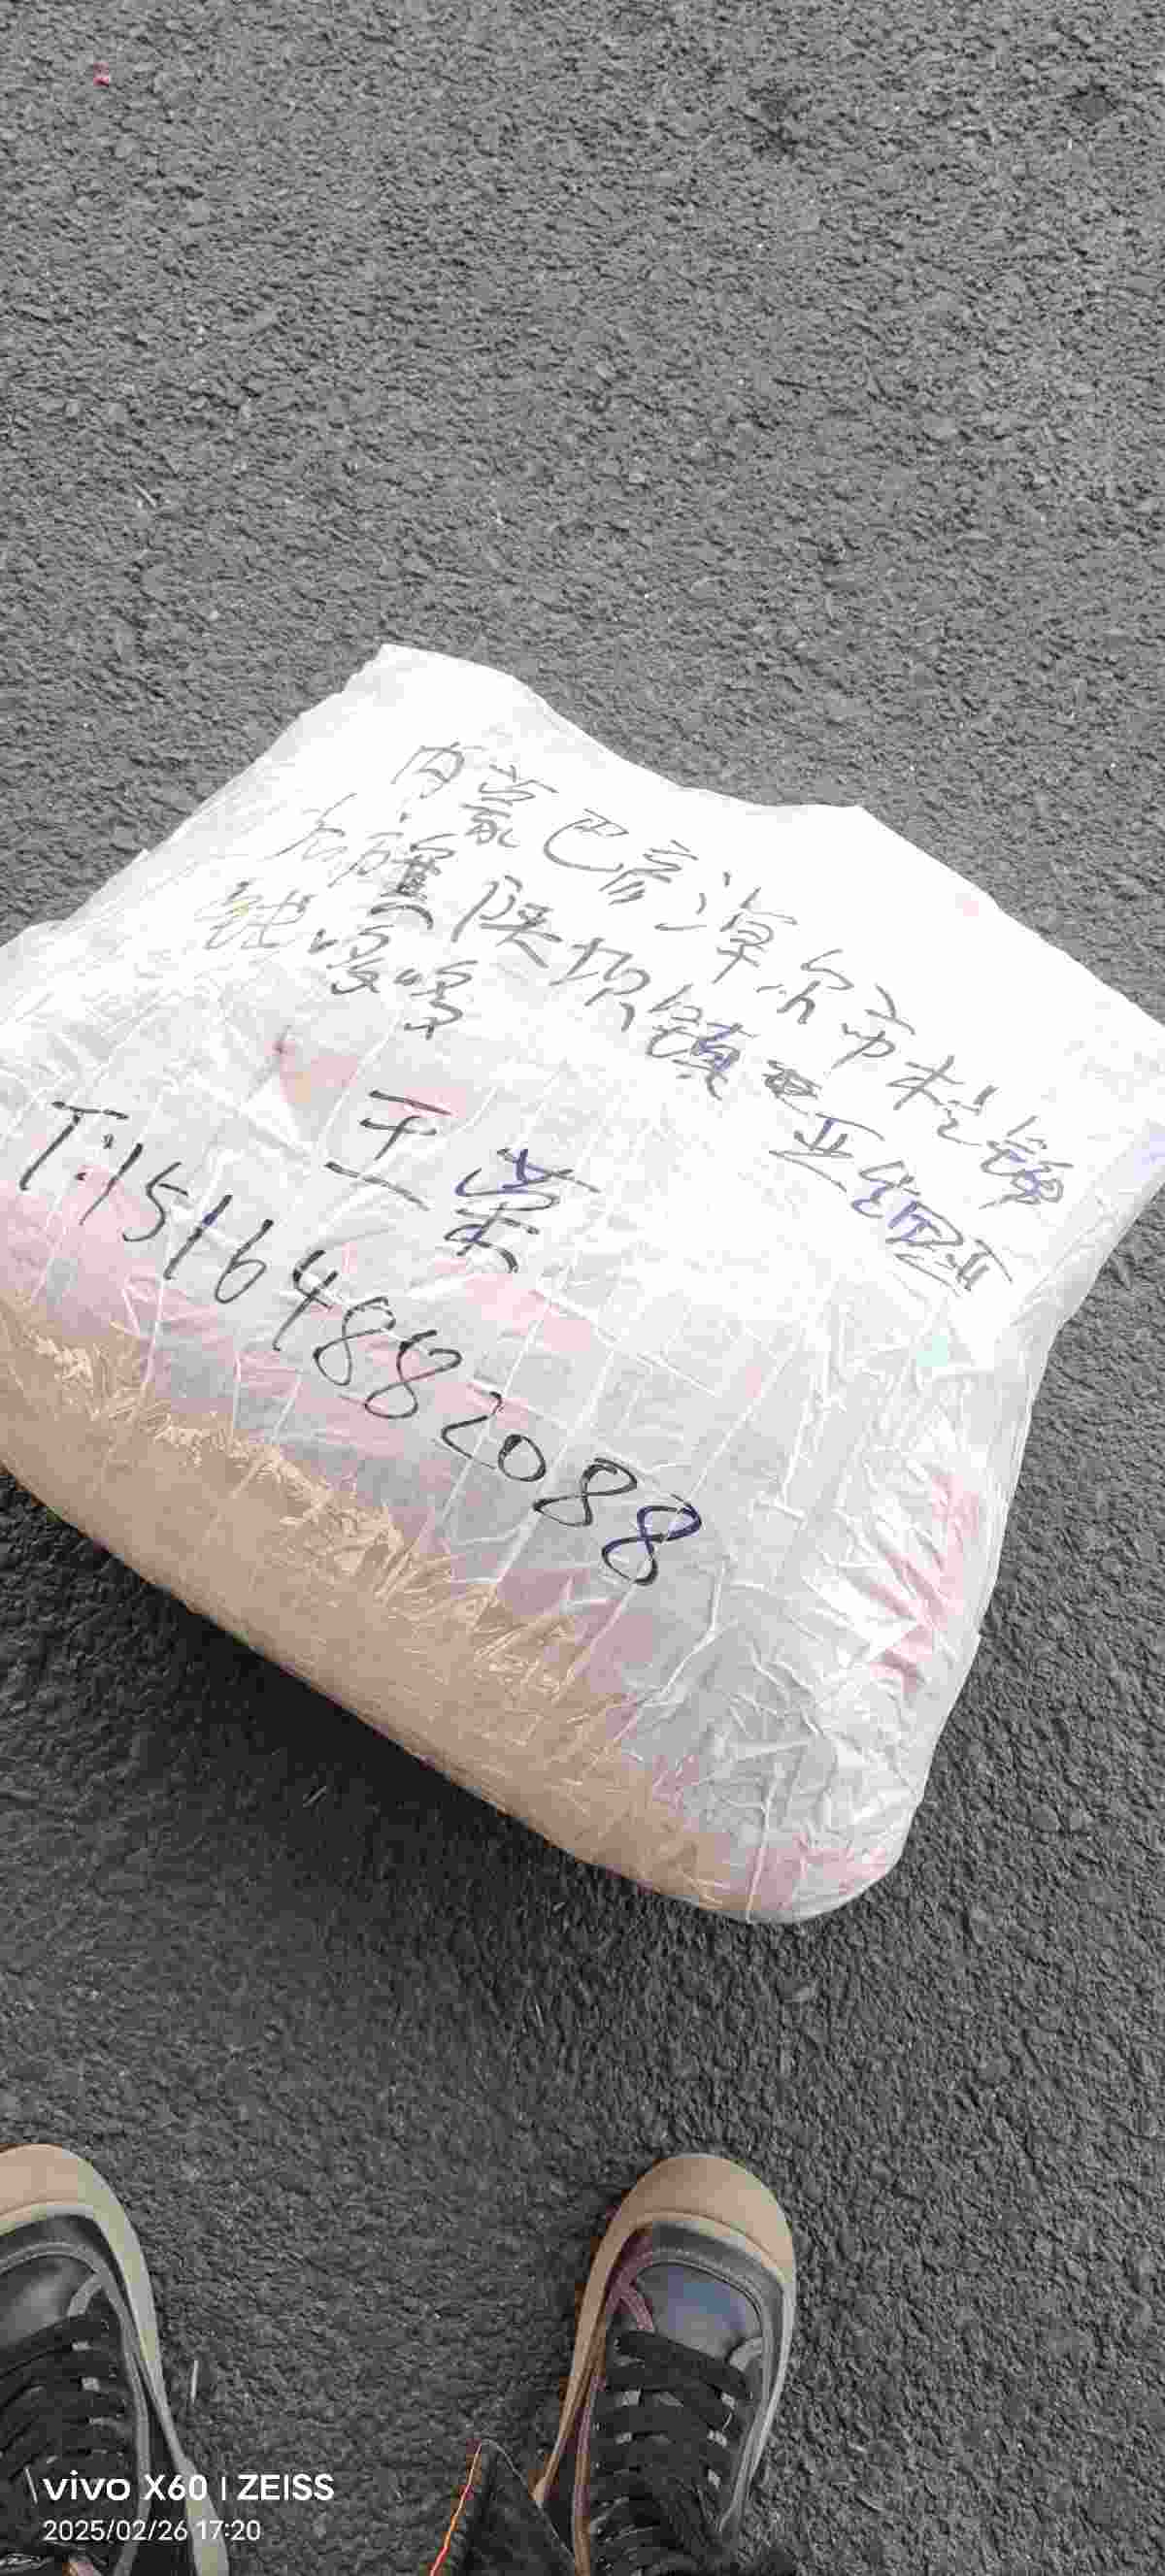 内蒙巴彦淖尔市杭锦
后旗陕坝镇亚华园
钱哆哆
王荣
T:15164882088
vivo X60 | ZEISS
2025/02/26 17:20